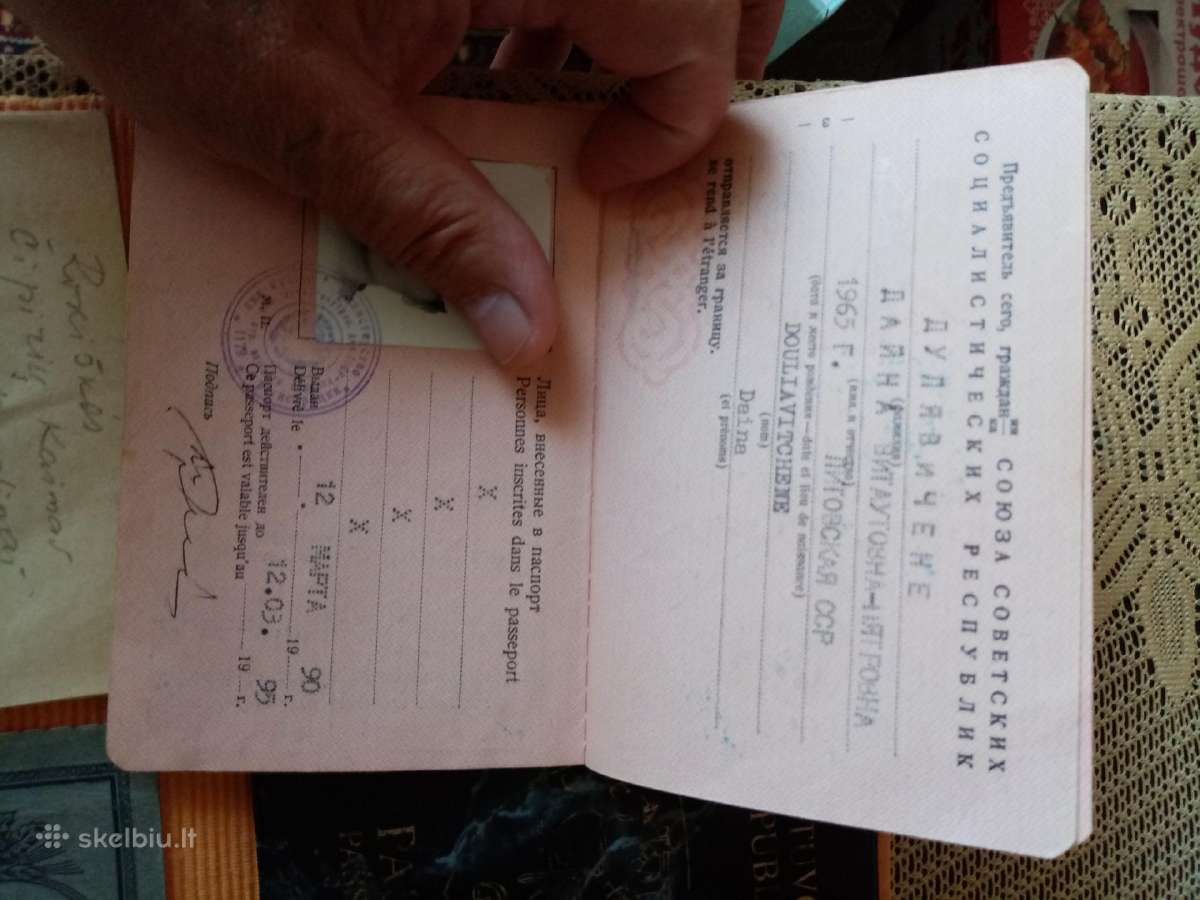 Предъявитель сего, граждан ин ка
СОЮЗА СОВЕТСКИХ
СОЦИАЛИСТИЧЕСКИХ РЕСПУБЛИК
ДУЛЯВИЧЕНЕ
(фамилия)
ДАЙНА ВИТАУТОВНА
(имя и отчество)
1965 г. ЛИТОВСКАЯ ССР
(дата и место рождения — date et lieu de naissance)
DOULIAVITCHENE
(nom)
Daina
(et prénoms)
отправляется за границу.
se rend à l'étranger.
3
Лица, внесенные в паспорт
Personnes inscrites dans le passeport
X
X
X
X
Выдан
Délivré le 12 МАРТА 1990 г.
М. П. Паспорт действителен до
Ce passeport est valable jusqu'au 12.03. 1995 г.
Подпись
skelbiu.lt